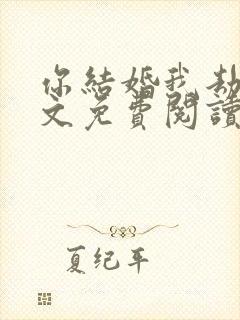 你結婚我劫
文免費閱讀
夏纪年